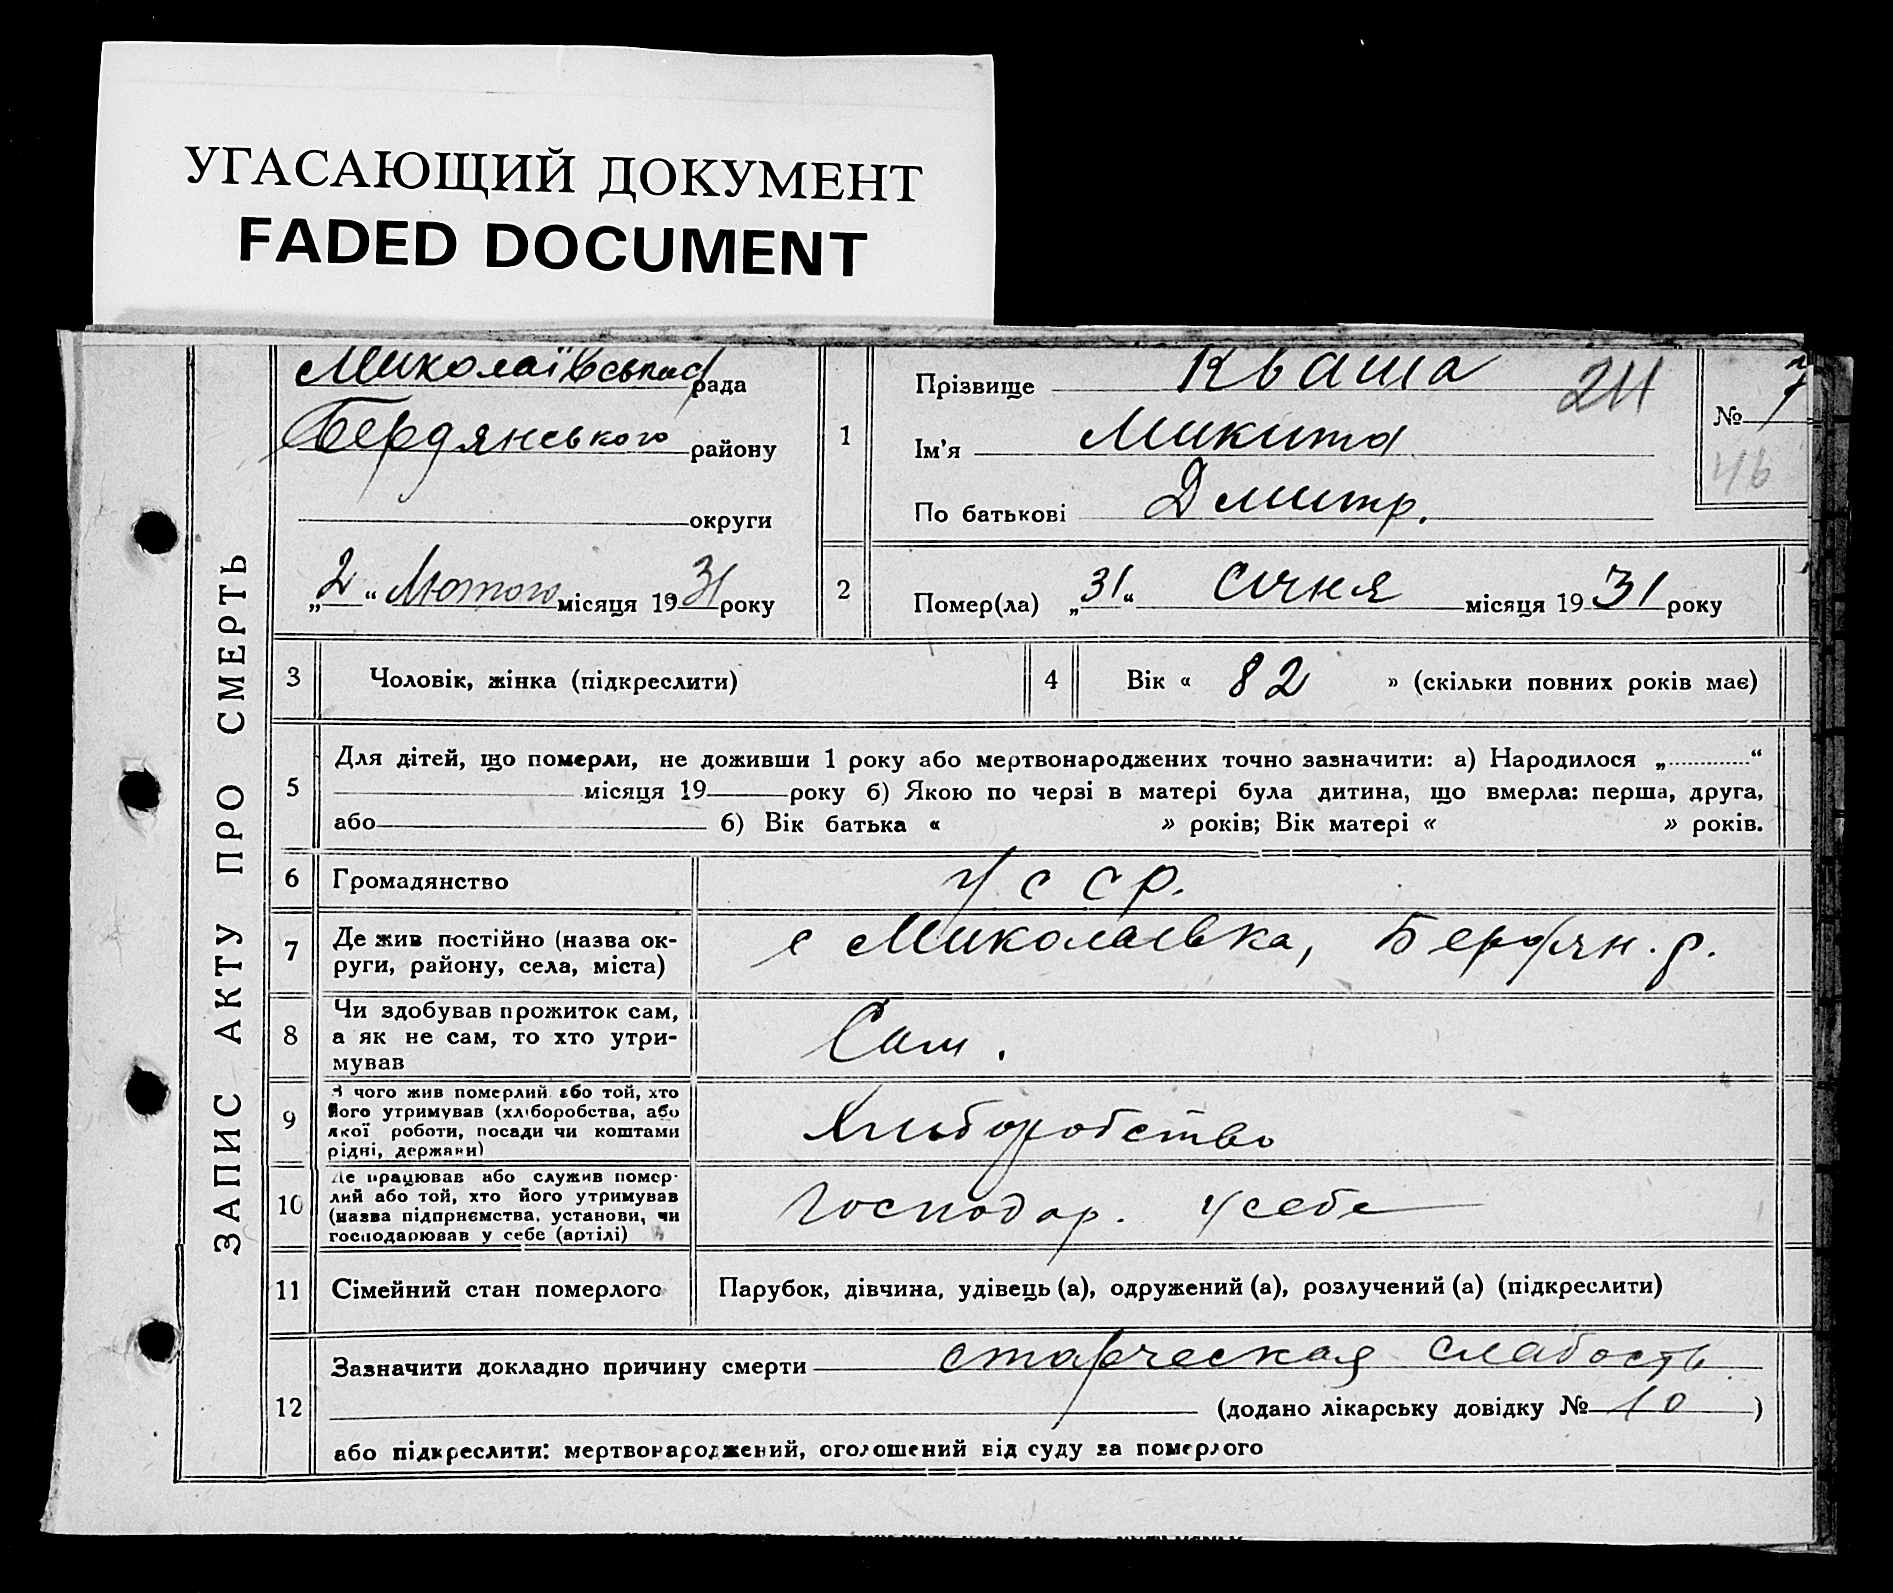 УГАСАЮЩИЙ ДОКУМЕНТ
FADED DOCUMENT
ЗАПИС АКТУ ПРО СМЕРТЬ
Миколаївська рада
Бердянського району
округи
„2“ Лютого місяця 1931 року
1
Прізвище Кваша
Ім'я Микита
По батькові Дмитр.
211
№
46
2
Помер(ла) „31“ січня місяця 1931 року
3
Чоловік, жінка (підкреслити)
4
Вік « 82 » (скільки повних років має)
5
Для дітей, що померли, не доживши 1 року або мертвонароджених точно зазначити: а) Народилося „ “
місяця 19 року б) Якою по черзі в матері була дитина, що вмерла: перша, друга,
або б) Вік батька « » років; Вік матері « » років.
6
Громадянство
УССР.
7
Де жив постійно (назва ок-
руги, району, села, міста)
с Миколаевка, Бердян. р.
8
Чи здобував прожиток сам,
а як не сам, то хто утри-
мував
Сам.
9
З чого жив померлий або той, хто
його утримував (хліборобства, або
якої роботи, посади чи коштами
рідні, держави)
Хліборобство
10
Де працював або служив помер-
лий або той, хто його утримував
(назва підприємства, установи, чи
господарював у себе (артілі)
Господар. у себе
11
Сімейний стан померлого
Парубок, дівчина, удівець (а), одружений (а), розлучений (а) (підкреслити)
12
Зазначити докладно причину смерти старческая слабость
(додано лікарську довідку № 10 )
або підкреслити: мертвонароджений, оголошений від суду за померлого